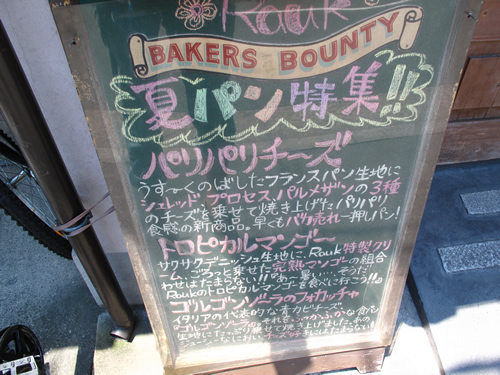 Rauk
BAKERS BOUNTY
夏パン特集!!
パリパリチーズ
うす〜くのばしたフランスパン生地に
シュレッド、プロセス、パルメザンの3種
のチーズを乗せて焼き上げたパリパリ
食感の新商品。早くもバカ売れ一押しパン!
トロピカルマンゴー
サクサクデニッシュ生地に、Rauk特製クリ
ーム、ごろっと乗せた完熟マンゴーの組合
わせはたまらない!!「あっ暑い…、そうだ
Raukのトロピカルマンゴーを食べに行こう!!」
ゴルゴンゾーラのフォカッチャ
イタリアの代表的な青カビチーズ
"ゴルゴンゾーラ"。それを
生地にたっぷり乗せて焼き上げました。あの
チーズ好きにはたまらない!